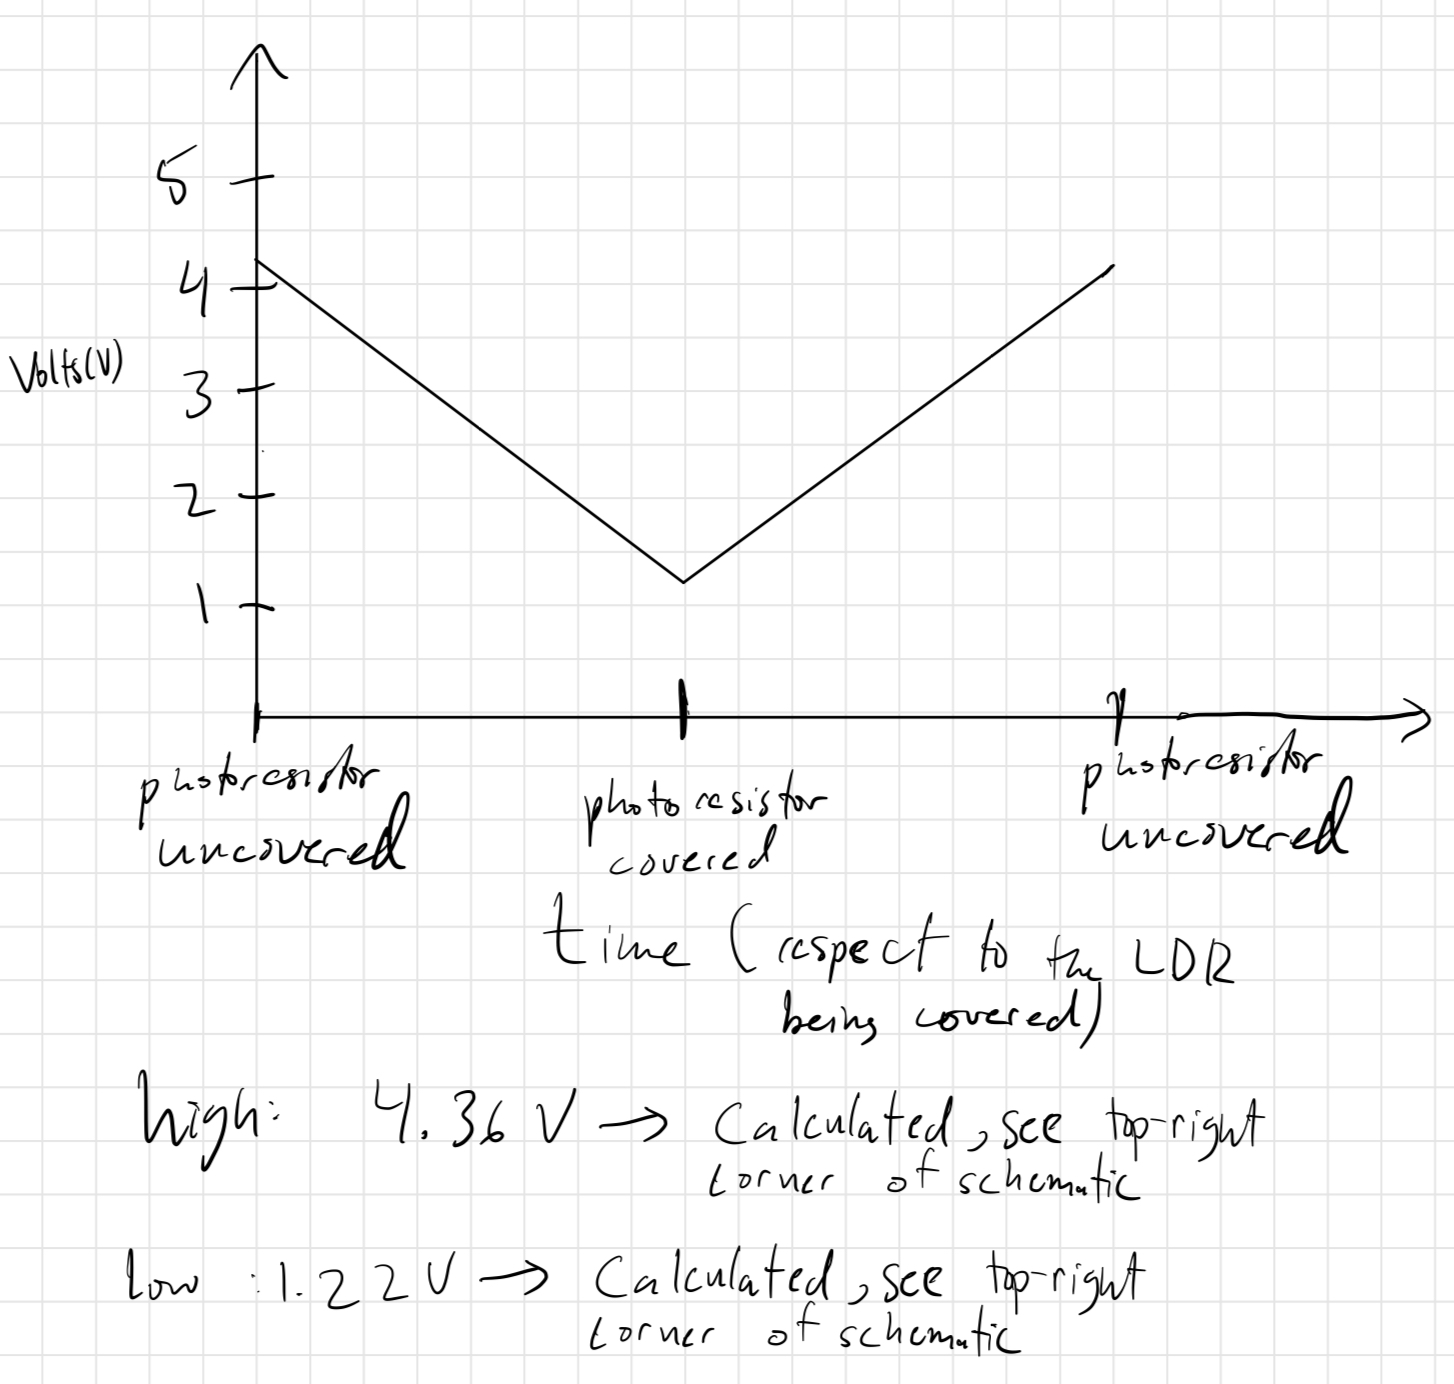 5
4
Volts(V)
3
2
1
photoresistor
uncovered
photoresistor
covered
photoresistor
uncovered
time (respect to the LDR
being covered)
high: 4.36 V → Calculated, see top-right
corner of schematic
low : 1.22 V → Calculated, see top-right
corner of schematic